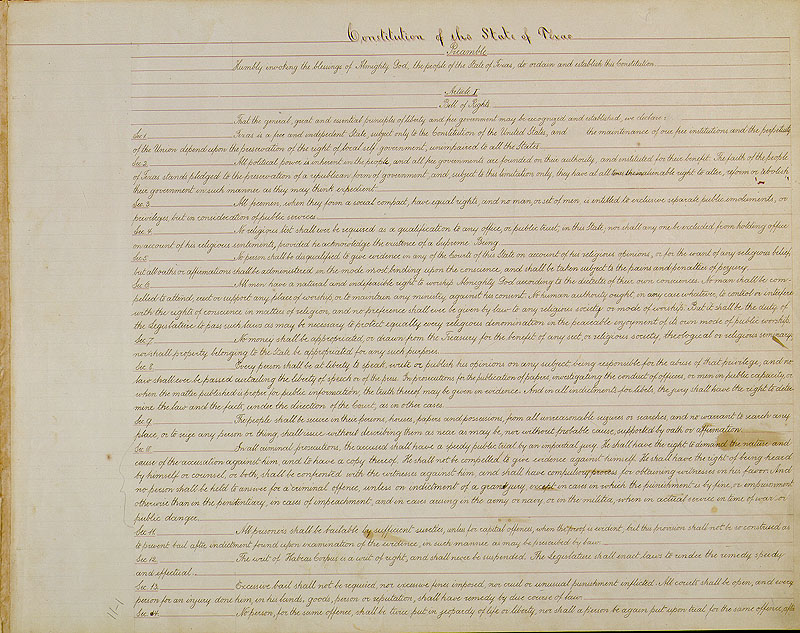 Constitution of the State of Texas
Preamble
Humbly invoking the blessings of Almighty God, the people of the State of Texas, do ordain and establish this Constitution.
Article I
Bill of Rights
That the general, great and essential principles of liberty and free government may be recognized and established, we declare:
Sec 1. Texas is a free and independent State, subject only to the Constitution of the United States, and the maintenance of our free institutions and the perpetuity
of the Union depend upon the preservation of the right of local self government, unimpaired to all the States.
Sec 2. All political power is inherent in the people, and all free governments are founded on their authority, and instituted for their benefit. The faith of the people
of Texas stands pledged to the preservation of a republican form of government, and, subject to this limitation only, they have at all times the inalienable right to alter, reform or abolish
their government in such manner as they may think expedient.
Sec. 3 All freemen, when they form a social compact, have equal rights, and no man, or set of men, is entitled to exclusive separate public emoluments, or
privileges, but in consideration of public services.
Sec. 4. No religious test shall ever be required as a qualification to any office, or public trust, in this State, nor shall any one be excluded from holding office
on account of his religious sentiments, provided he acknowledge the existence of a Supreme Being.
Sec. 5 No person shall be disqualified to give evidence in any of the Courts of this State on account of his religious opinions, or for the want of any religious belief,
but all oaths or affirmations shall be administered in the mode most binding upon the conscience, and shall be taken subject to the pains and penalties of perjury.
Sec. 6 All men have a natural and indefeasible right to worship Almighty God according to the dictates of their own consciences. No man shall be com-
pelled to attend, erect or support any place of worship, or to maintain any ministry against his consent. No human authority ought, in any case whatever, to control or interfere
with the rights of conscience in matters of religion, and no preference shall ever be given by law to any religious society or mode of worship. But it shall be the duty of
the Legislature to pass such laws as may be necessary to protect equally every religious denomination in the peaceable enjoyment of its own mode of public worship.
Sec. 7 No money shall be appropriated, or drawn from the Treasury for the benefit of any sect, or religious society, theological or religious seminary,
nor shall property belonging to the State be appropriated for any such purposes.
Sec. 8 Every person shall be at liberty to speak, write or publish his opinions on any subject, being responsible for the abuse of that privilege, and no
law shall ever be passed curtailing the liberty of speech or of the press. In prosecutions for the publication of papers, investigating the conduct of officers, or men in public capacity, or
when the matter published is proper for public information, the truth thereof may be given in evidence. And in all indictments for libels, the jury shall have the right to deter-
mine the law and the facts, under the direction of the Court, as in other cases.
Sec 9 The people shall be secure in their persons, houses, papers and possessions, from all unreasonable seizures or searches, and no warrant to search any
place, or to seize any person or thing, shall issue without describing them as near as may be, nor without probable cause, supported by oath or affirmation.
Sec. 10 In all criminal prosecutions, the accused shall have a speedy public trial by an impartial jury. He shall have the right to demand the nature and
cause of the accusation against him, and to have a copy thereof. He shall not be compelled to give evidence against himself. He shall have the right of being heard
by himself or counsel, or both, shall be confronted with the witnesses against him, and shall have compulsory process for obtaining witnesses in his favor. And
no person shall be held to answer for a criminal offence, unless on indictment of a grand jury, except in cases in which the punishment is by fine, or imprisonment
otherwise than in the penitentiary, in cases of impeachment, and in cases arising in the army or navy, or in the militia, when in actual service in time of war or
public danger.
Sec 11. All prisoners shall be bailable by sufficient sureties, unless for capital offences, when the proof is evident, but this provision shall not be so construed as
to prevent bail after indictment found upon examination of the evidence, in such manner as may be prescribed by law.
Sec 12. The writ of Habeas Corpus is a writ of right, and shall never be suspended. The Legislature shall enact laws to render the remedy speedy
and effectual.
Sec. 13. Excessive bail shall not be required, nor excessive fines imposed, nor cruel or unusual punishment inflicted. All courts shall be open, and every
person for an injury done him, in his lands, goods, person or reputation, shall have remedy by due course of law.
Sec. 14. No person, for the same offence, shall be twice put in jeopardy of life or liberty, nor shall a person be again put upon trial for the same offence, after
11-1